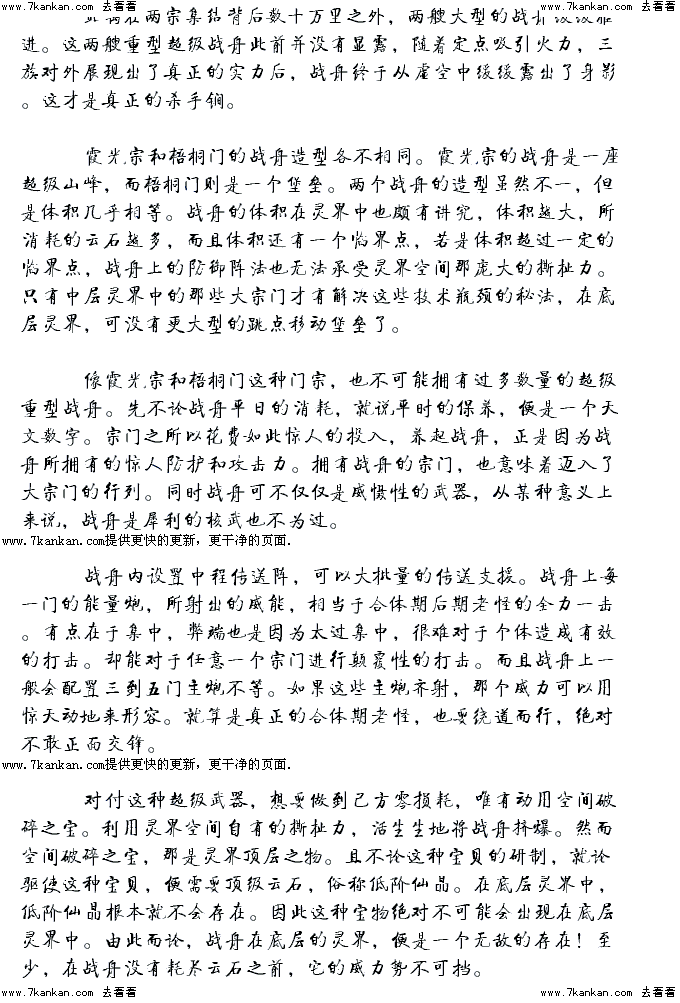 www.7kankan.com 去看看 www.7kankan.com 去看看
在两宗集结背后数十万里之外，两艘大型的战舟
进。这两艘重型超级战舟此前并没有显露，随着定点吸引火力，三
族对外展现出了真正的实力后，战舟终于从虚空中缓缓露出了身影
。这才是真正的杀手锏。
霞光宗和梧桐门的战舟造型各不相同。霞光宗的战舟是一座
超级山峰，而梧桐门则是一个堡垒。两个战舟的造型虽然不一，但
是体积几乎相等。战舟的体积在灵界中也颇有讲究，体积越大，所
消耗的云石越多，而且体积还有一个临界点，若是体积超过一定的
临界点，战舟上的防御阵法也无法承受灵界空间那庞大的撕扯力。
只有中层灵界中的那些大宗门才有解决这些技术瓶颈的秘法，在底
层灵界，可没有更大型的跳点移动堡垒了。
像霞光宗和梧桐门这种门宗，也不可能拥有过多数量的超级
重型战舟。先不论战舟平日的消耗，就说平时的保养，便是一个天
文数字。宗门之所以花费如此惊人的投入，养起战舟，正是因为战
舟所拥有的惊人防护和攻击力。拥有战舟的宗门，也意味着迈入了
大宗门的行列。同时战舟可不仅仅是威慑性的武器，从某种意义上
来说，战舟是犀利的核武也不为过。
www.7kankan.com提供更快的更新，更干净的页面.
战舟内设置中程传送阵，可以大批量的传送支援。战舟上每
一门的能量炮，所射出的威能，相当于合体期后期老怪的全力一击
。有点在于集中，弊端也是因为太过集中，很难对于个体造成有效
的打击。却能对于任意一个宗门进行颠覆性的打击。而且战舟上一
般会配置三到五门主炮不等。如果这些主炮齐射，那个威力可以用
惊天动地来形容。就算是真正的合体期老怪，也要绕道而行，绝对
不敢正面交锋。
www.7kankan.com提供更快的更新，更干净的页面.
对付这种超级武器，想要做到己方零损耗，唯有动用空间破
碎之宝。利用灵界空间自有的撕扯力，活生生地将战舟挤爆。然而
空间破碎之宝，那是灵界顶层之物。且不论这种宝贝的研制，就论
驱使这种宝贝，便需要顶级云石，俗称低阶仙晶。在底层灵界中，
低阶仙晶根本就不会存在。因此这种宝物绝对不可能会出现在底层
灵界中。由此而论，战舟在底层的灵界，便是一个无敌的存在！至
少，在战舟没有耗尽云石之前，它的威力势不可挡。
www.7kankan.com 去看看 www.7kankan.com 去看看